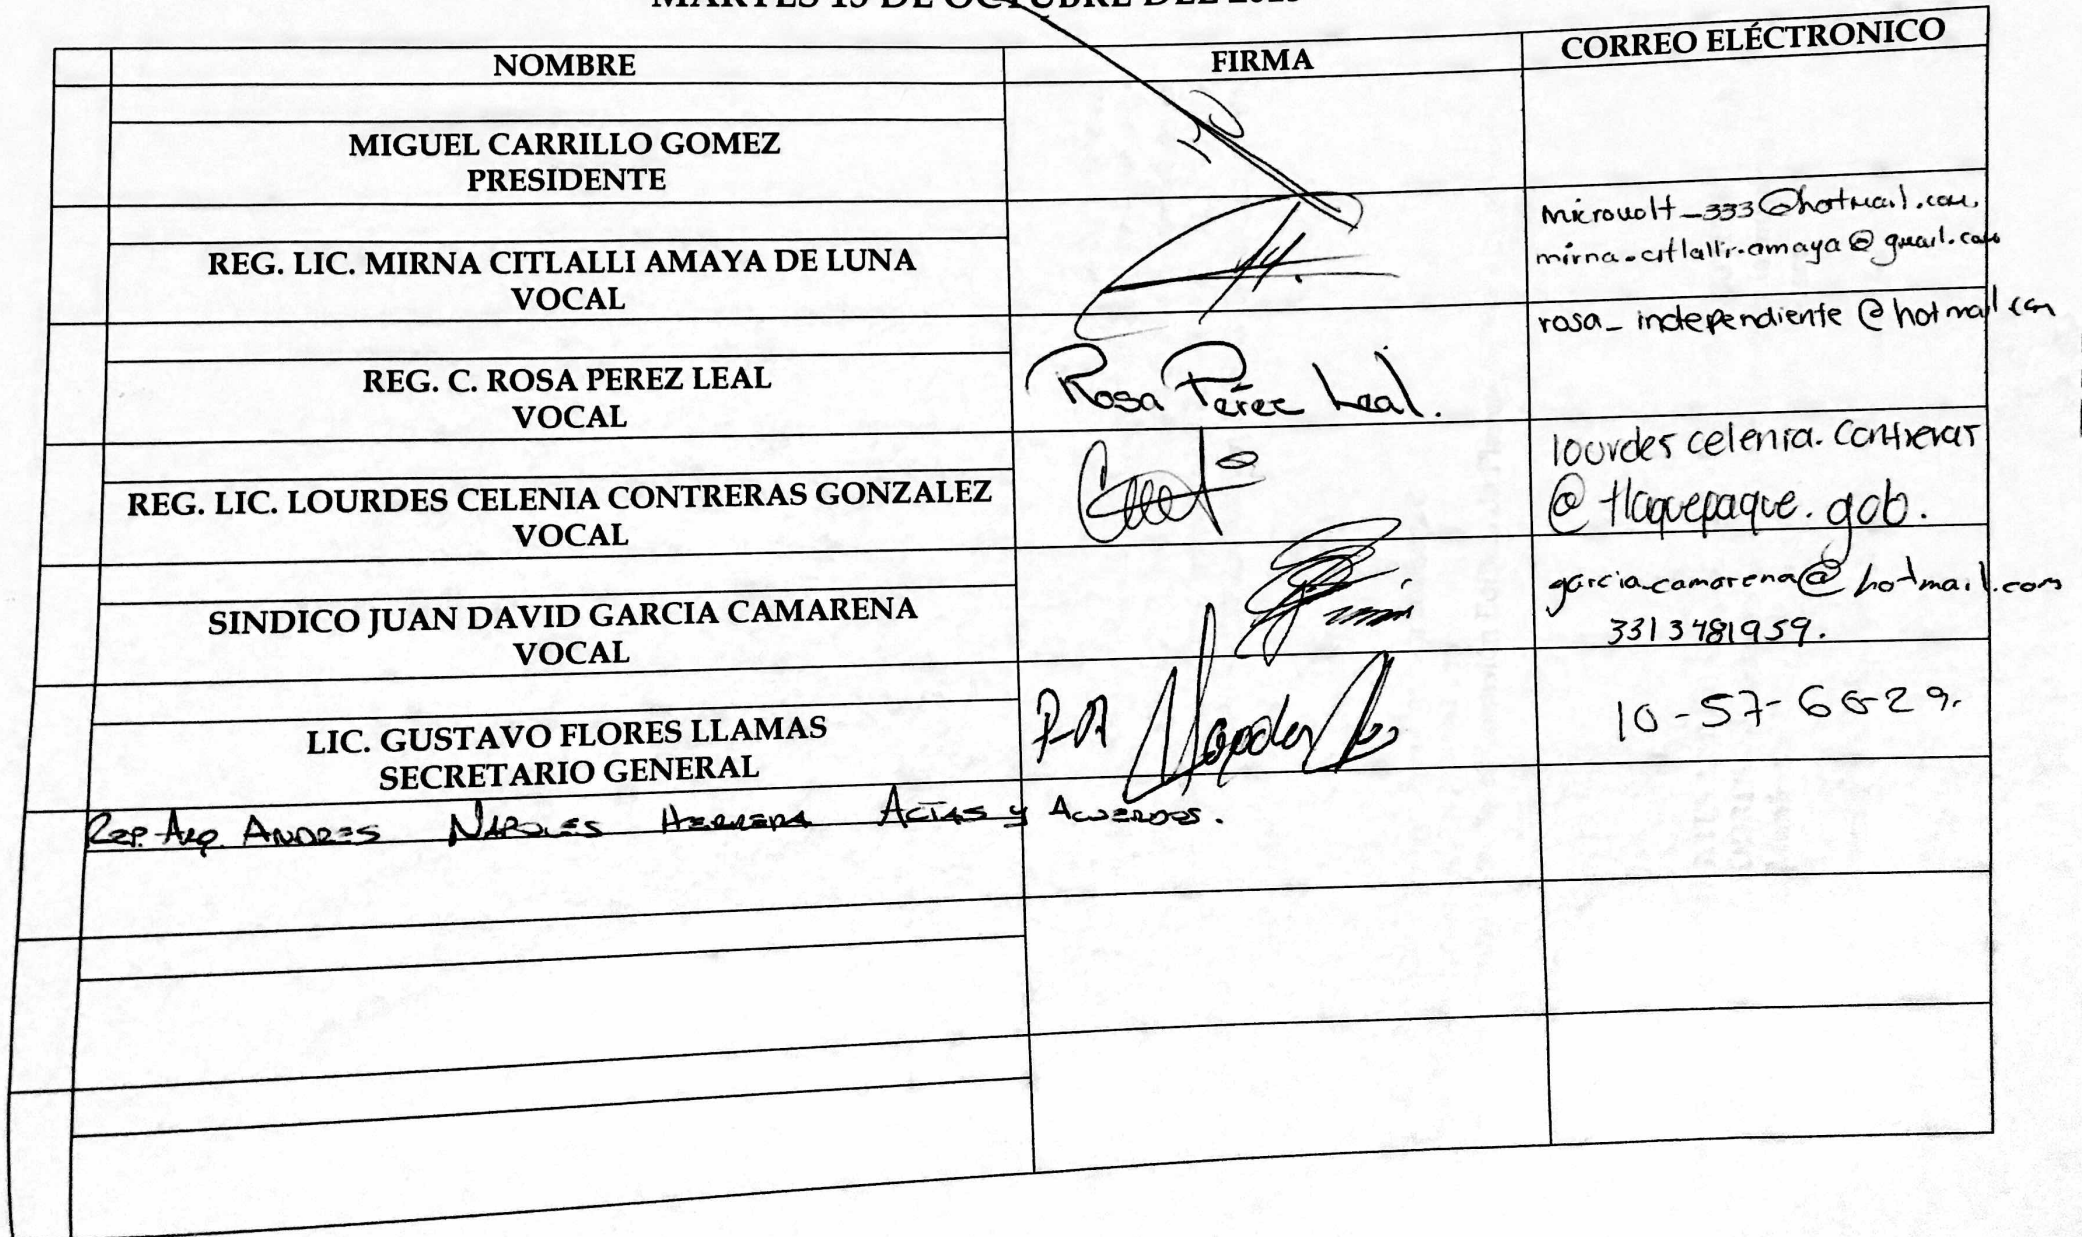 MARTES 13 DE OCTUBRE DEL 2015
NOMBRE FIRMA CORREO ELÉCTRONICO
MIGUEL CARRILLO GOMEZ
PRESIDENTE
microvolt_333@hotmail.com.
REG. LIC. MIRNA CITLALLI AMAYA DE LUNA
VOCAL
mirna.citlalli.amaya@gmail.com
REG. C. ROSA PEREZ LEAL
VOCAL
Rosa Pérez Leal.
rosa_independiente@hotmail.com
REG. LIC. LOURDES CELENIA CONTRERAS GONZALEZ
VOCAL
lourdes celenia.contreras
@tlaquepaque.gob.
SINDICO JUAN DAVID GARCIA CAMARENA
VOCAL
garcia.camarena@hotmail.com
3313481959.
LIC. GUSTAVO FLORES LLAMAS
SECRETARIO GENERAL
P.A
10-57-60-29.
Rep. Arq. ANDRES NAPOLES HERRERA ACTAS y ACUERDOS.